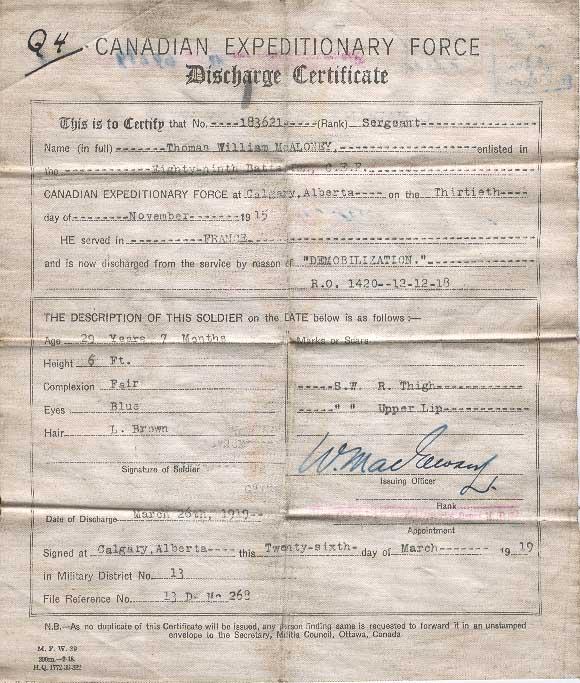 Q4
CANADIAN EXPEDITIONARY FORCE
Discharge Certificate
This is to Certify that No.----183621-----(Rank) Sergeant---------------
Name (in full)-------Thoman William McALONEY,----------------enlisted in
the-------------Eighty-ninth Battalion, C.E.F.-----------------
CANADIAN EXPEDITIONARY FORCE at Calgary,Alberta---- on the Thirtieth-----
day of---------November-------1915
HE served in ----------FRANCE.
and is now discharged from the service by reason of "DEMOBILIZATION."
R.O. 1420--12-12-18
THE DESCRIPTION OF THIS SOLDIER on the DATE below is as follows :—
Age 29 Years 7 Months Marks or Scars
Height 6 Ft.
Complexion Fair -----S.W. R. Thigh-------------
Eyes Blue -----" " Upper Lip------------
Hair L. Brown
Signature of Soldier
Issuing Officer
Rank
Date of Discharge March 26th, 1919--
Appointment
Signed at Calgary,Alberta---- this Twenty-sixth- day of March------- 1919
in Military District No. 13
File Reference No. 13 D. Mc 268
N.B.—As no duplicate of this Certificate will be issued, any person finding same is requested to forward it in an unstamped
envelope to the Secretary, Militia Council, Ottawa, Canada.
M. F. W. 39
300m.—2-18.
H.Q. 1772-39-322